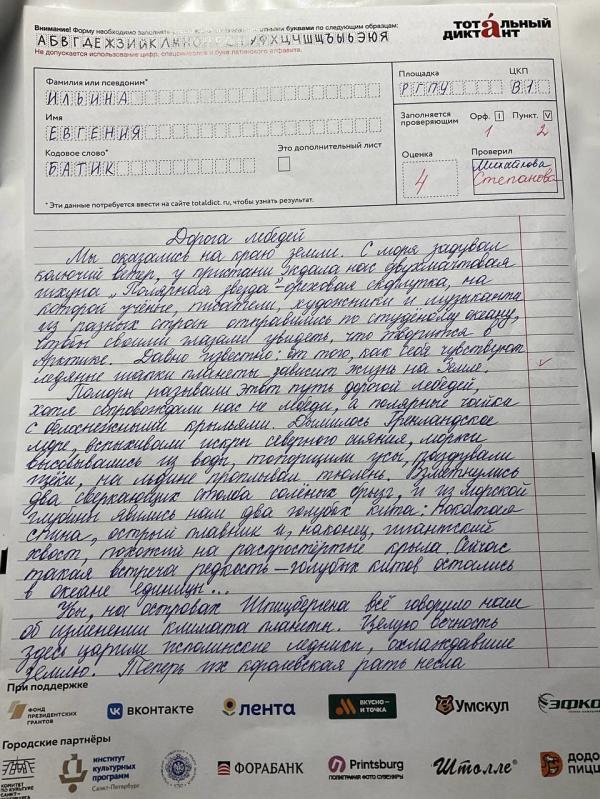 Внимание! Форму необходимо заполнять печатными буквами по следующим образцам:
АБВГДЕЖЗИЙКЛМНО УФХЦЧШЩЪЫЬЭЮЯ
Не допускается использование цифр, спецсимволов и букв латинского алфавита.
тотальный
диктант
Фамилия или псевдоним*
ИЛЬИНА
Имя
ЕВГЕНИЯ
Кодовое слово*
БАТИК
Это дополнительный лист
* Эти данные потребуется ввести на сайте totaldict.ru, чтобы узнать результат.
Площадка
ЦКП
РГПУ
В1
Заполняется проверяющим
Орф. I
Пункт. V
1
2
Оценка
Проверил
4
Михайлова
Степанова
Дорога лебедей
Мы оказались на краю земли. С моря задувал
колючий ветер, у пристани ждала нас двухмачтовая
шхуна „Полярная звезда" – ореховая скорлупка, на
которой учёные, писатели, художники и музыканты
из разных стран отправились по студёному океану,
чтобы своими глазами увидеть, что творится в
Арктике. Давно известно: от того, как себя чувствуют
ледяные шапки планеты зависит жизнь на Земле.
Поморы называли этот путь дорогой лебедей,
хотя сопровождали нас не лебеди, а полярные чайки
с белоснежными крыльями. Дымилось Гренландское
море, вспыхивали искры северного сияния, моржи
высовывались из воды, топорщили усы, раздували
щёки, на льдине проплывал тюлень. Взметнулись
два сверкающих столба солёных брызг, и из морской
глубины явились нам два голубых кита: покатая
спина, острый плавник и, наконец, гигантский
хвост, похожий на распростёртые крыла. Сейчас
такая встреча редкость – голубых китов остались
в океане единицы...
Увы, на островах Шпицбергена всё говорило нам
об изменении климата планеты. Целую вечность
здесь царили исполинские ледники, охлаждавшие
Землю. Теперь их королевская рать несла
При поддержке
ФОНД ПРЕЗИДЕНТСКИХ ГРАНТОВ
ВКОНТАКТЕ
лента
ВКУСНО – И ТОЧКА
Умскул
ЭФКО
Городские партнёры
КОМИТЕТ ПО КУЛЬТУРЕ САНКТ-
институт культурных программ
Санкт-Петербург
ФОРАБАНК
Printsburg
ПОЛИГРАФИЯ ФОТО СУВЕНИРЫ
Штолле
ДОДО ПИЦЦ